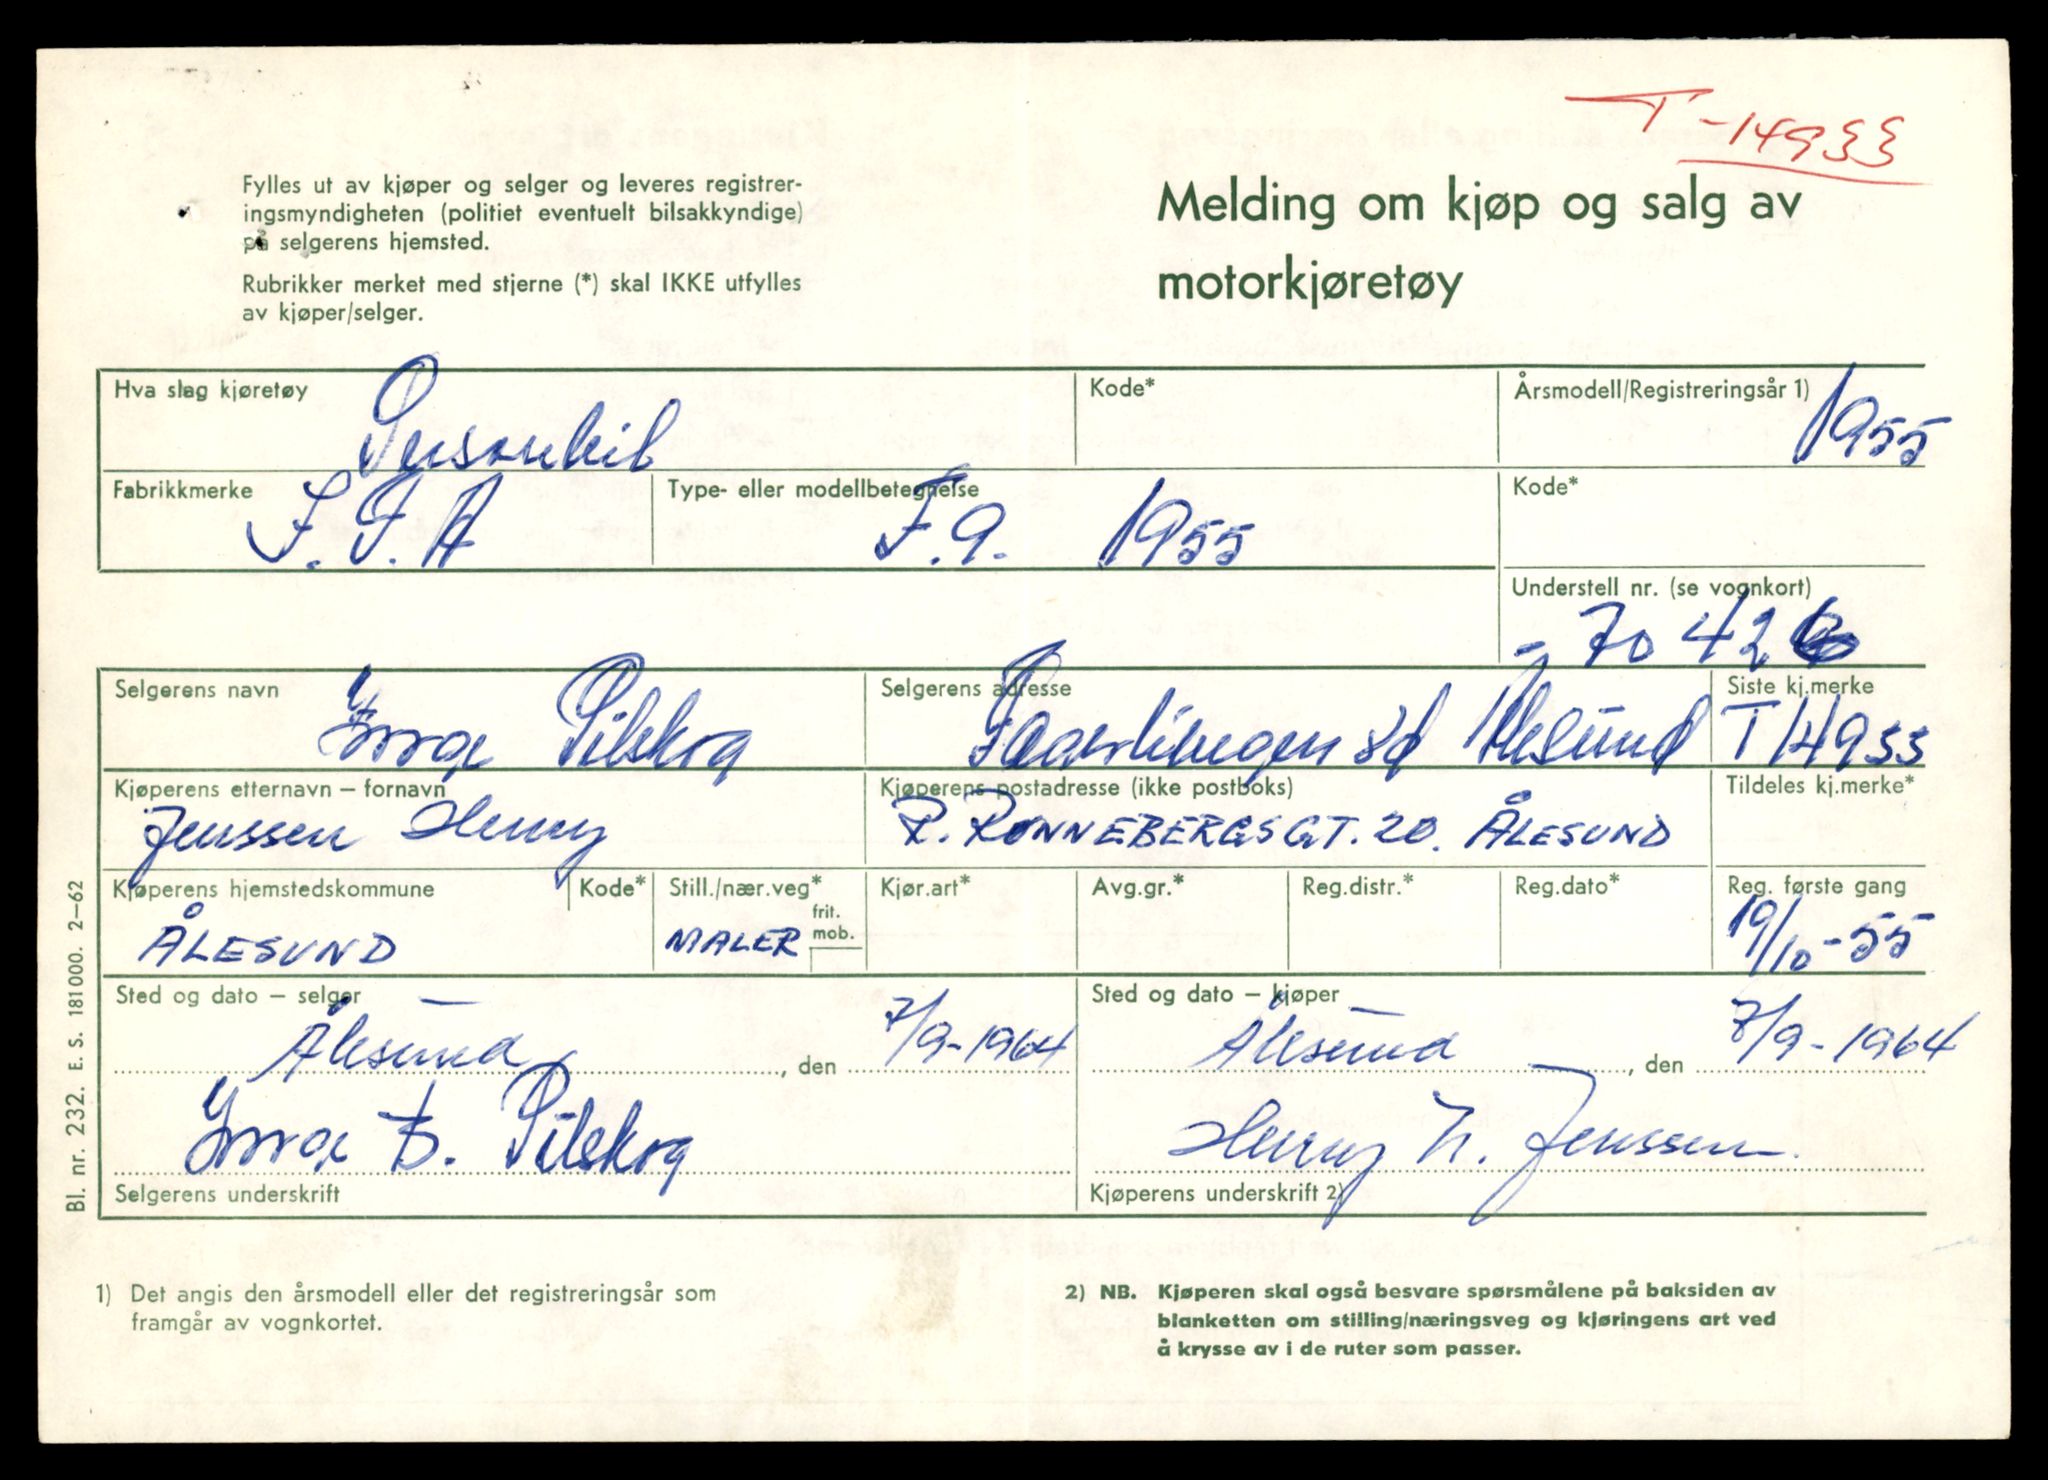 T-14933
Fylles ut av kjøper og selger og leveres registrer-
ingsmyndigheten (politiet eventuelt bilsakkyndige)
på selgerens hjemsted.
Rubrikker merket med stjerne (*) skal IKKE utfylles
av kjøper/selger.
Melding om kjøp og salg av
motorkjøretøy
Hva slag kjøretøy Personbil
Kode*
Årsmodell/Registreringsår 1) 1955
Fabrikkmerke I.F.A
Type- eller modellbetegnelse F.9. 1955
Kode*
Understell nr. (se vognkort)
- 70426
Selgerens navn Pilskog
Selgerens adresse Ålesund
Siste kj.merke T14933
Kjøperens etternavn – fornavn
Jenssen Henry
Kjøperens postadresse (ikke postboks)
R. RØNNEBERGSGT. 20. ÅLESUND
Tildeles kj.merke*
Kjøperens hjemstedskommune
ÅLESUND
Kode*
Still./nær.veg*
MALER
frit.
mob.
Kjør.art*
Avg.gr.*
Reg.distr.*
Reg.dato*
Reg. første gang
19/10-55
Sted og dato – selger
Ålesund, den 7/9-1964
Sted og dato – kjøper
Ålesund, den 7/9-1964
B. Pilskog
Selgerens underskrift
Henry N. Jenssen
Kjøperens underskrift 2)
Bl. nr. 232. E. S. 181000. 2–62
1) Det angis den årsmodell eller det registreringsår som
framgår av vognkortet.
2) NB. Kjøperen skal også besvare spørsmålene på baksiden av
blanketten om stilling/næringsveg og kjøringens art ved
å krysse av i de ruter som passer.